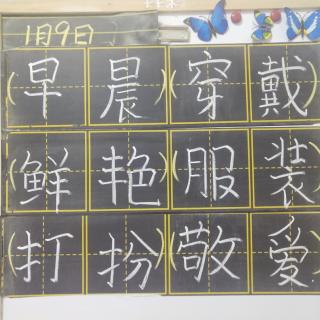 1月9日
(早晨)(穿戴
(鲜艳)(服装
(打扮)(敬爱